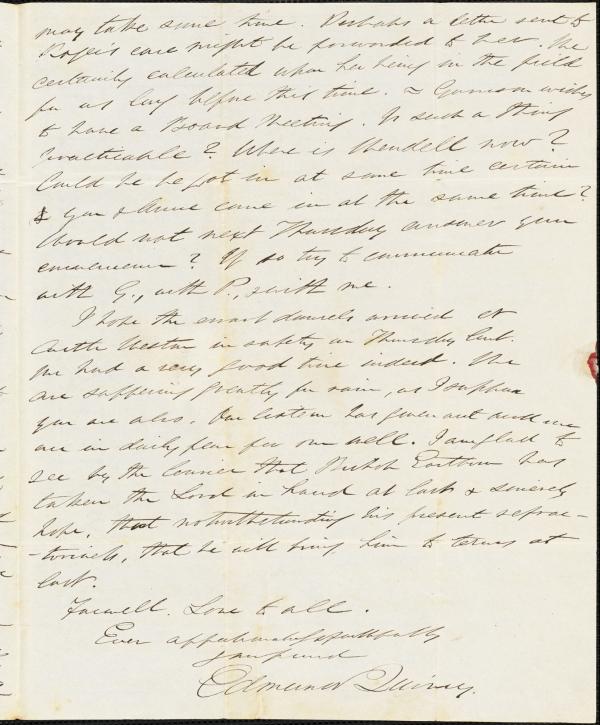 may take some time. Perhaps a letter sent to
Roger's care might be forwarded to her. We
certainly calculated upon her being in the field
for us long before this time. ~ Garrison wishes
to have a Board Meeting. Is such a thing
practicable? Where is Wendell now?
Could he be got in at some time certain
& you & Anne come in at the same time?
Would not next Thursday answer your
convenience? If so try to communicate
with G., with P., & with me.
I hope the errant damsels arrived at
Castle Weston in safety on Thursday last.
We had a very good time indeed. We
are suffering greatly for rain, as I suppose
you are also. Our cistern has given out and we
are in daily fear for our well. I am glad to
see by the Courier that Bishop Eastburn has
taken the Lord in hand at last & sincerely
hope, that notwithstanding his present refrac-
-toriness, that he will bring him to terms at
last.
Farewell. Love to all.
Ever affectionately & faithfully
your friend
Edmund Quincy.